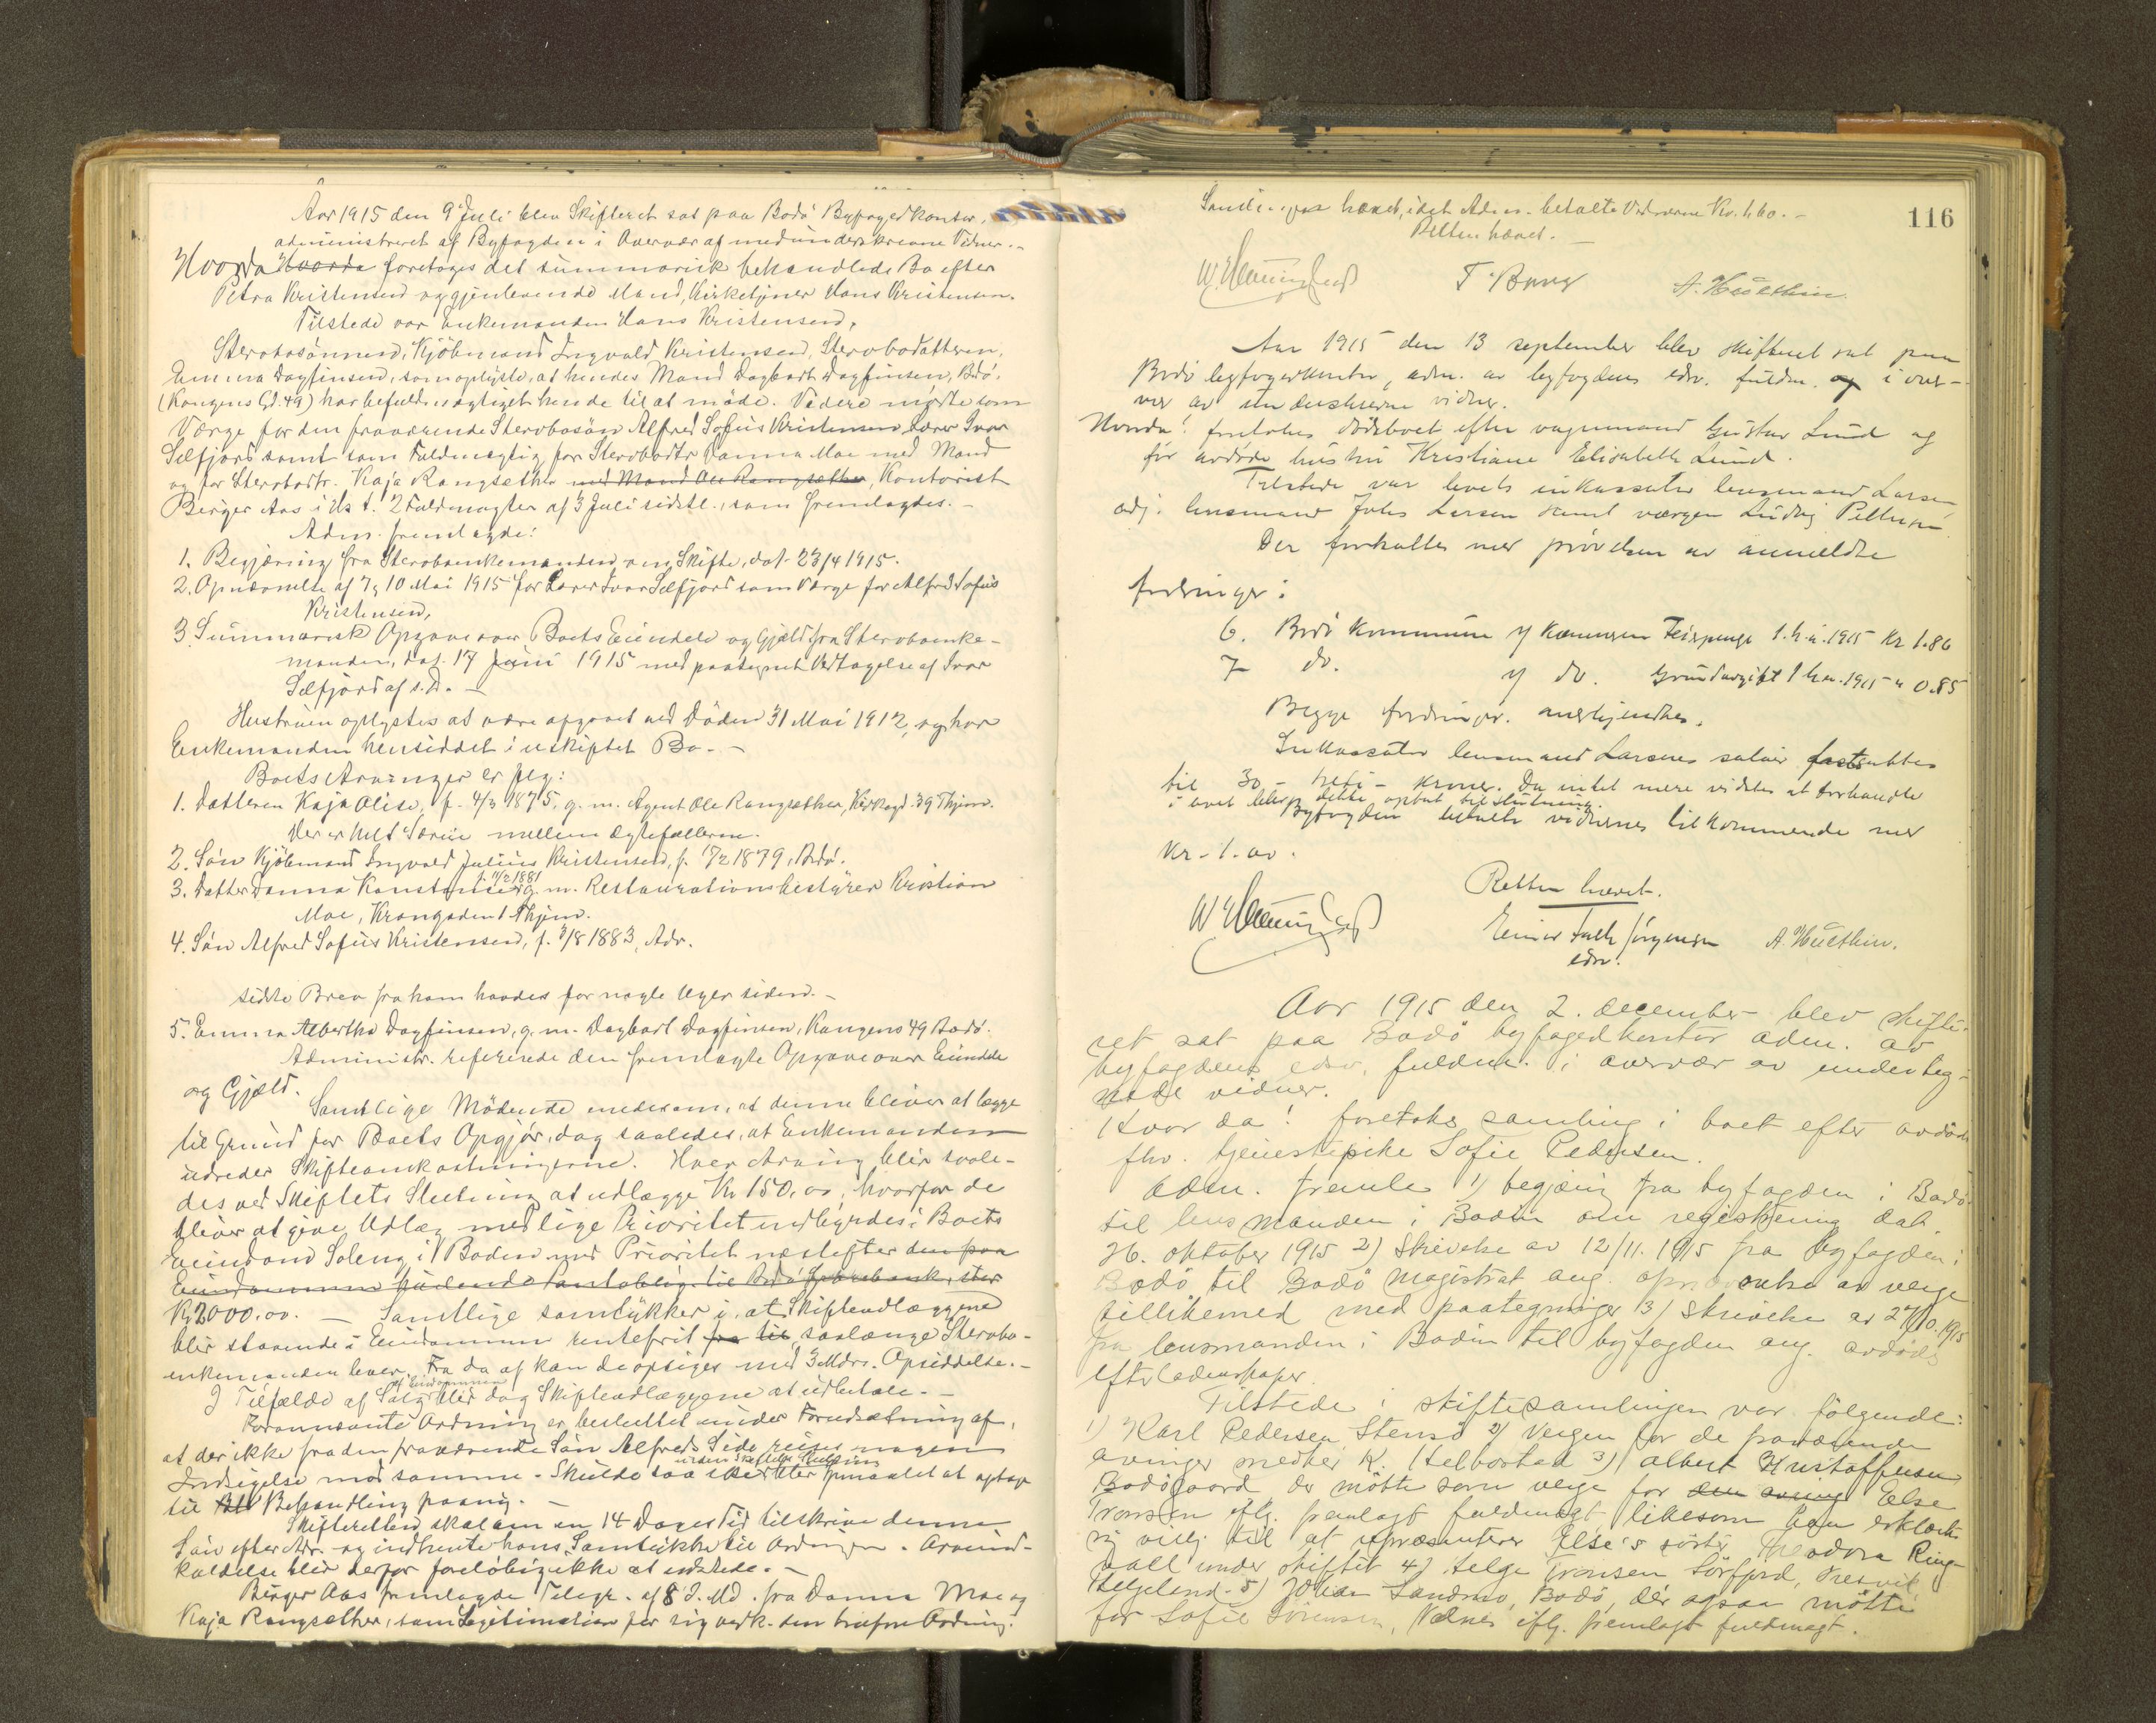 Aar 1915 den 9' Juli blev Skifteret sat paa Bodö Byfogedkontor,
administreret af Byfogden i Overvær af medunderskrevne Vidner.-
Hvorda Hvorda foretoges det summarisk behandlede Bo efter
Petra Kristensen og gjenlevende Mand, Kirketjener Hans Kristensen.
Tilstede var Enkemanden Hans Kristensen,
Stervbosönnen, Kjöbmand Ingvald Kristensen, Stervbodatteren,
Emma Dagfinsen, som oplyste, at hendes Mand Dagbart Dagfinsen, Bodö,
(Kongens Gd. 49) har befuldmægtiget hende til at möde. Videre mödte som
Værge for den fraværende Stervbosön Alfred Sofus Kristensen Lærer Ivar
Selfjord samt som Fuldmægtig for Stervbodtr Danna Moe med Mand
og for Stervbodtr. Kaja Rangsether med Mand Ole Rangsether, Kontorist
Berger Aas i flg. 2 Fuldmagter af 3 Juli sidstl., som fremlagdes.-
Adm. fremlagde:
1. Begjæring fra Stervboenkemanden om Skifte, dat. 23/4 1915.
2. Opnævnelse af 7, 10 Mai 1915 for Lærer Ivar Selfjord som Værge for Alfred Sofus
Kristensen,
3. Summarisk Opgave over Boets Eiendele og Gjæld fra Stervboenke-
manden, dat. 17 Juni 1915 med paategnet Vedtagelse af Ivar
Selfjord af s.D. -
Hustruen oplystes at være afgaaet ved Döden 31 Mai 1912, og har
Enkemanden hensiddet i uskiftet Bo. -
Boets Arvinger er flg:
1. Datteren Kaja Olise, f. 4/3 1875, g.m. Agent Ole Rangsether, Kirkegd. 39 Thjem.
Der er helt Særeie mellem Ægtefællerne.
2. Sön Kjöbmand Ingvald Julius Kristensen, f. 17/2 1879, Bodö.
3. Datter Danna Konstanse f. 11/2 1881 g.m. Restaurationsbestyrer Kristian
Moe, Krangaden 1 Thjem.
4. Sön Alfred Sofus Kristensen, f. 3/8 1883, Adr.
sidste Brev fra ham havdes for nogle Uger siden.-
5. Emma Albertha Dagfinsen, g.m. Dagbart Dagfinsen, Kongens 49 Bodö.
Administr. refererede den fremlagte Opgave over Eiendele
og Gjæld.
Samtlige Mödende enedes om, at denne bliver at lægge
til Grund for Boets Opgjör, dog saaledes, at Enkemanden
udreder Skifteomkostningerne. Hver Arving blir saale-
des ved Skiftets Slutning at udlægge Kr 150,00, hvorfor de
bliver at give Udlæg med lige Prioritet indbyrdes i Boets
Eiendom Soleng i Bodin med Prioritet næstefter den paa
Eiendommen hvilende Pantoblig. til Bodö Sparebank, stor
Kr 2000.00. - Samtlige samtykker i, at Skifteudlæggene
blir staaende i Eiendommen rentefrit fra til, saalænge Stervbo-
enkemanden lever. Fra da af kan de opsiges med 3 Mdrs. Opsiddelse.-
I Tilfælde af Salg af Eiendommen blir dog Skifteudlæggene at udbetale.-
Forannævnte Ordning er besluttet under Forudsætning af,
at der ikke fra den fraværende Sön Alfreds Side reises nogen
Indsigelse mod samme. Skulde saa ske inden Skiftets Slutning blir Spörsmaalet at optage
til Behandling paany. -
Skifteretten skal om en 14 Dages Tid tilskrive denne
Sön efter Adr. og indhente hans Samtykke til Ordningen. Arveind-
kaldelse blir derfor foreløbig ikke at udstede.-
Berger Aas fremlagde Telegr. af 8 d. Md. fra Danna Moe og
Kaja Rangsether, som Legitimation for sig vedk. den trufne Ordning.
116
Samlingen hævet, idet Adm. betalte Vidnerne Kr. 1,60.-
Retten hævet. -
T. Berg A. Hülthin.
Aar 1915 den 13 september blev skifteret sat paa
Bodö byfogedkontor, adm. av byfogdens edsv. fuldm. og i over-
vær av underskrevne vidner.
Hvorda! foretokes dödsboet efter vognmand Gustav Lund og
før avdöde hustru Kristiane Elisabeth Lund.
Tilstede var boets inkassator lensmand Larsen
adj. lensmand Johs Larsen samt værgen Ludvig Pettersen
Der forholtes med prövelsen av anmeldte
fordringer:
6. Bodö Kommune v/ Kæmneren Feiepenge 1. h.a. 1915 Kr 1.86
7 do. v/ do. Grundavgift 1 h.a. 1915 " 0.85
Begge fordringer anerkjendtes.
Inkassator lensmand Larsens salær fastsattes
til 30 - treti - kroner. Da intet mere vidstes at forhandle
i boet blev dette optat til slutning.
Byfogden betalte vidnernes tilkommende med
Kr - 1.60.
Retten hævet.
Einar Falk Jörgensen A. Hülthin.
edsv.
Aar 1915 den 2. december blev skifte-
ret sat paa Bodö byfogedkontor adm. av
byfogdens edsv. fuldm. i overvær av underteg-
nede vidner.
Hvor da! foretokes samling i boet efter avdöde
fhv. tjenestepike Sofie Pedersen.
Adm. fremla 1) begjæring fra byfogden i Bodö
til lensmanden i Bodin om registrering dat.
26. oktober 1915 2) skrivelse av 12/11. 1915 fra byfogden i
Bodö til Bodö Magistrat ang. opnævnelse av verge
tillikemed med paategninger 3) skrivelse av 27/10. 1915
fra lensmanden i Bodin til byfogden ang. avdödes
efterladenskaper.
Tilstede i skiftesamlingen var følgende:
1) Karl Pedersen Stensö 2) Vergen for de fraværende
arvinger snedker K. Helbostad 3) Albert Kristoffersen
Bodögaard, der mötte som verge for den arving Else
Tronsen iflg. fremlagt fuldmagt likesom han erklærte
sig villig til at repræsentere Else's söster Theodora Ring-
vall under skiftet 4) Helge Tronsen Sörfjord, Tresvik
Helgeland. 5) Johan Sandmo, Bodö, der ogsaa mötte
for Sofie Sörensen, Valnes iflg. fremlagt fuldmagt.